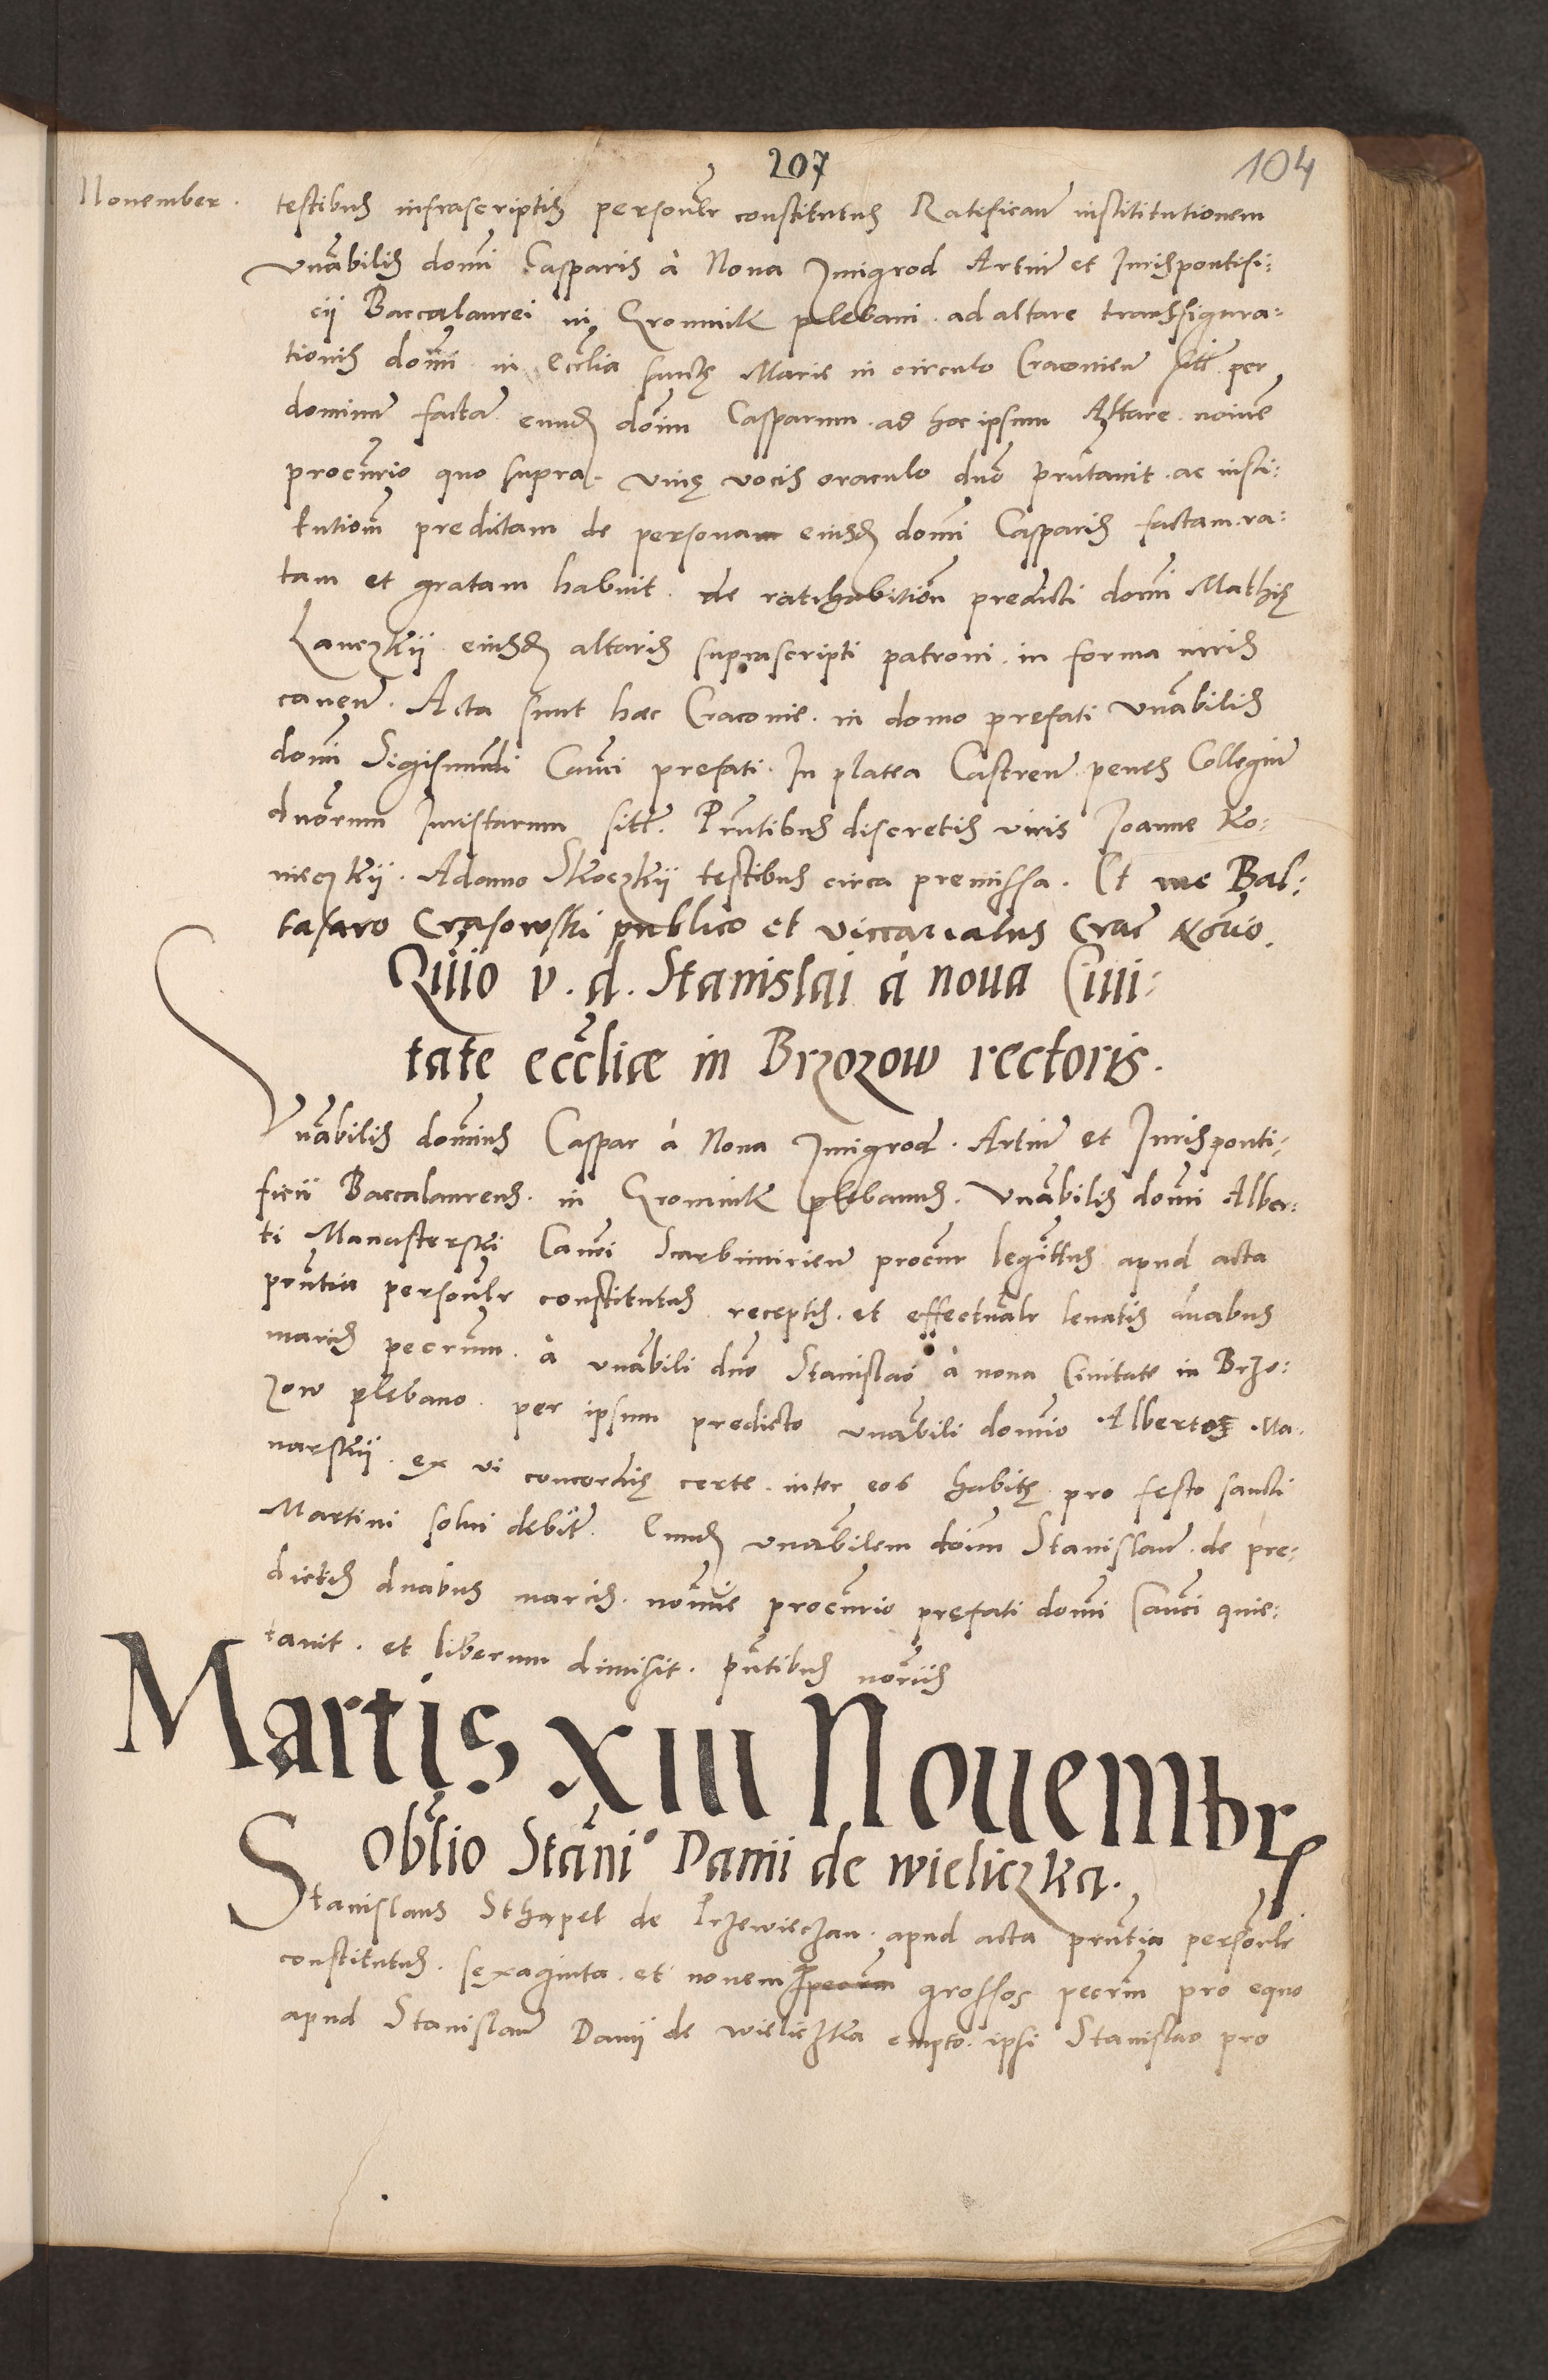 207
104
November.
testibus infrascriptis personlr constitutus Ratificauit instititutionem
vnabilis domi Casparis à Noua Imigrod Artium et Jurispontifi:
cii Baccalaurei in Gromnik plebani. ad altare transfigura:
tionis domi in Ecclia sanctę Marie in circulo Cracouien sitt per
dominum factam eund domi Casparum. ad hoc ipsum Altare. noie
procurio quo supra. viuę vocis oraculo duo prntauit. ac insti:
tutiom predictam de personam eiusd domi Casparis factam. ra:
tam et gratam habuit. de ratihabitiom predicti domi Mathię
Lanczkii eiusd altaris suprascripti patroni. in forma iuris
canen. Acta sunt haec Cracouie. in domo prefati vnabilis
domi Sigismundi Canci prefati. In platea Castren penes Collegium
duorum Iuristarum sitt. Prntibus discretis viris Joanne Ko:
nieczkii. Adamo Skoczkii testibus circa premissa. Et me Bal:
tasaro Crasowski publico et viccariatus Crac Notario.
Quiio v. d. Stanislai à noua Ciui:
tate eccliæ in Brzozow rectoris.
Vnabilis dominus Caspar à Noua Imigrod. Artium et Jurisponti:
ficii Baccalaureus. in Gromnik plebanus. Vnabilis domi Alber:
ti Manasterski Canci Scarbimirien procur legittus apud acta
prntia personlr constitutus receptis. et effectualr leuatis duabus
marcis pecrum. à vnabili duo Stanislao à noua Ciuitate in Brzo:
zow plebano. per ipsum predicto vnabili domio Alberto Ma.
narskii. ex vi concordię certe. inter eos habitę pro festo sancti
Martini solui debit. Eund vnabilem doim Stanislaum. de pre:
dictis duabus marcis. nomie procurio prefati domi Canci quie:
tauit. et liberum dimisit. Pntibus noriis
Martis XIII Nouembr
Oblio Stani Damii de wieliczka.
Stanislaus Sthapel de Przewieczan. apud acta prntia personlr
constitutus. sexaginta. et nouem grossos pecrum pro equo
apud Stanislaum Damij de wieliczka empto. ipsi Stanislao pro